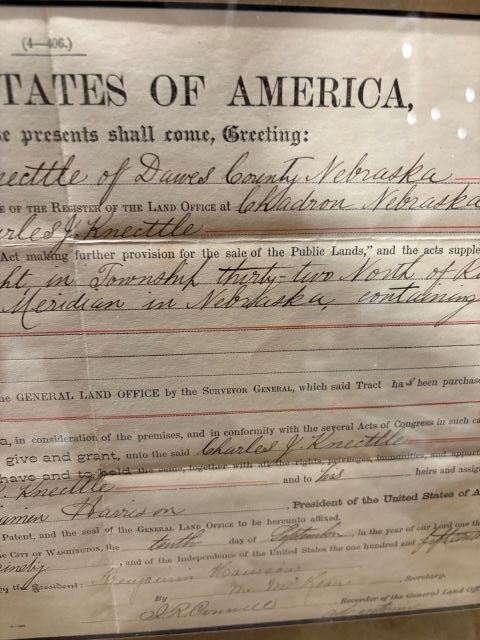 (4—406.)
TATES OF AMERICA,
se presents shall come, Greeting:
necttle of Dawes County Nebraska
E OF THE REGISTER OF THE LAND OFFICE AT Chadron Nebraska
arles J. Knecttle
Act making further provision for the sale of the Public Lands," and the acts supple
ht, in Township thirty-two North of Ra
Meridian in Nebraska, containing
he GENERAL LAND OFFICE by the SURVEYOR GENERAL, which said Tract has been purchase
a, in consideration of the premises, and in conformity with the several Acts of Congress in such ca
give and grant, unto the said Charles J. Knecttle
have and to hold the same, together with all the rights, privileges, immunities, and appurt
J. Knecttle and to his heirs and assig
jamin Harrison, President of the United States of A
Patent, and the seal of the GENERAL LAND OFFICE to be hereunto affixed.
he CITY OF WASHINGTON, the tenth day of September, in the year of our Lord one th
ninety, and of the Independence of the United States the one hundred and fifteenth
By the President: Benjamin Harrison
By M. McKean, Secretary.
Recorder of the General Land Off